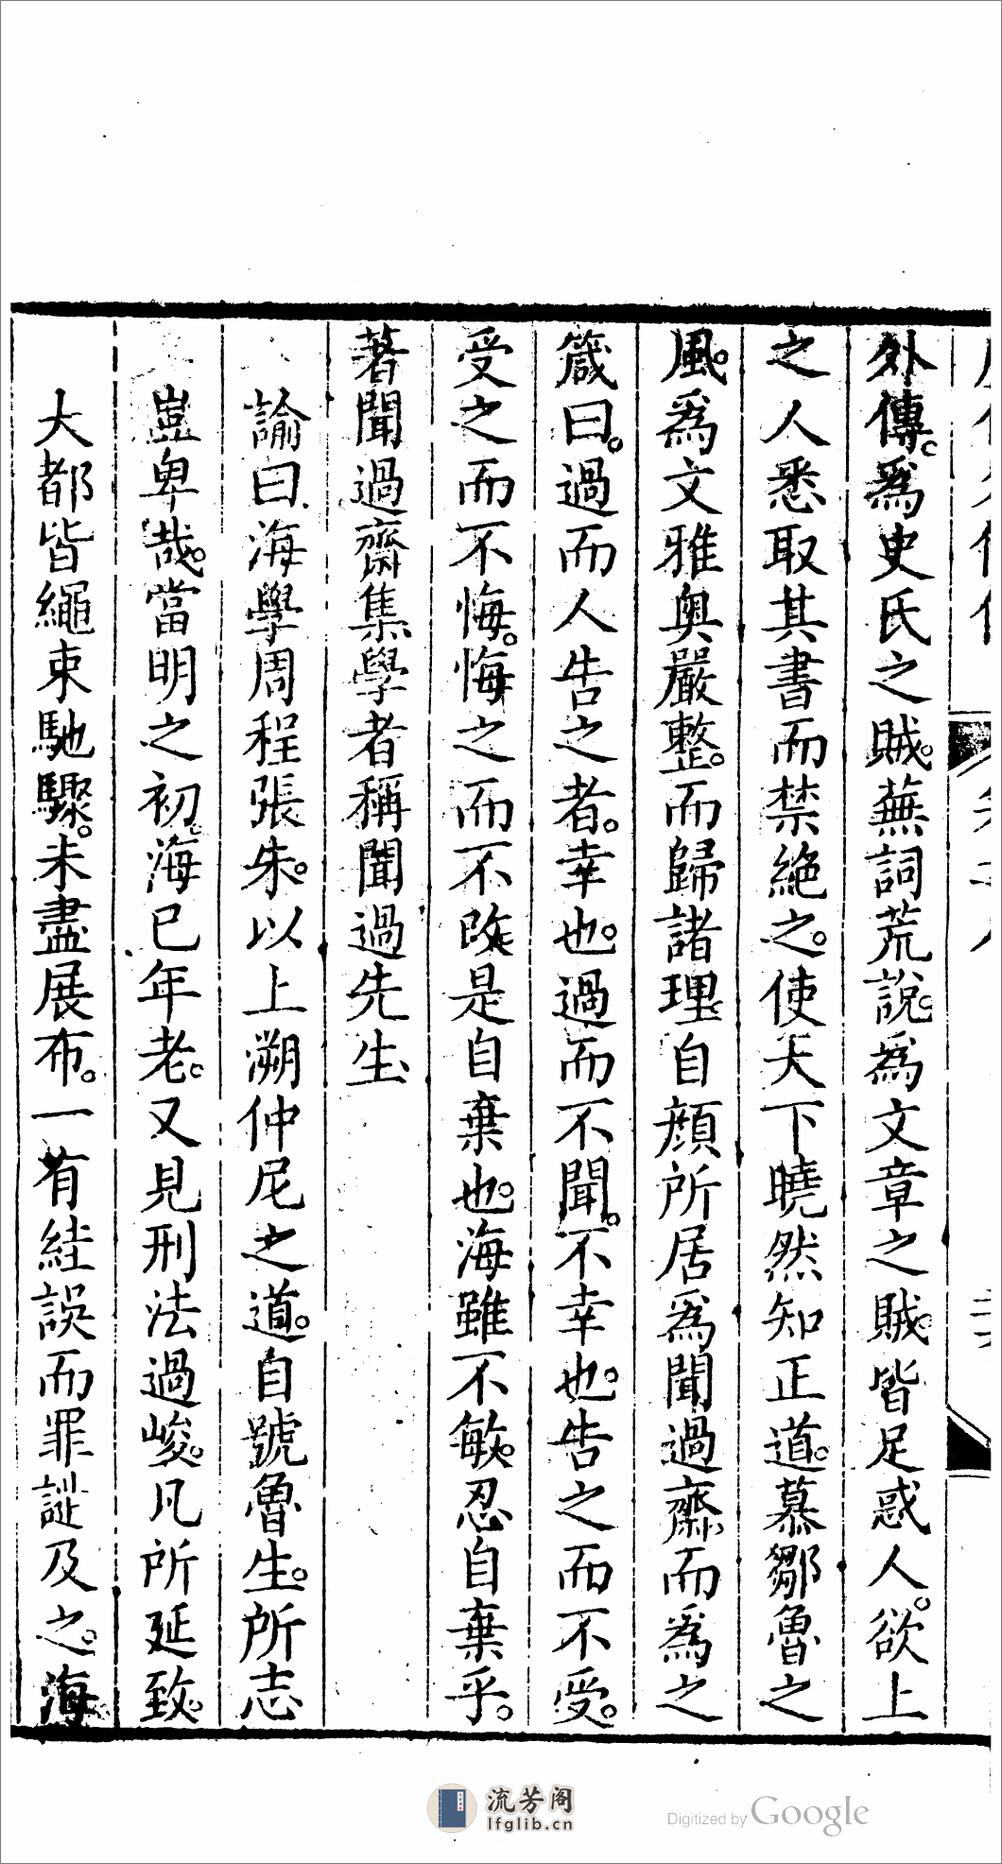 外傳。爲史氏之賊。蕪詞荒說。爲文章之賊。皆足惑人。欲上
之人悉取其書而禁絶之。使天下曉然知正道。慕鄒魯之
風。爲文雅奥嚴整。而歸諸理自顔所居爲聞過齋而爲之
箴曰。過而人告之者。幸也。過而不聞。不幸也。告之而不受。
受之而不悔。悔之而不改是自棄也。海雖不敏。忍自棄乎。
著聞過齋集學者稱聞過先生
論曰海學周程張朱。以上溯仲尼之道。自號魯生。所志
豈卑哉。當明之初。海已年老。又見刑法過峻。凡所延致。
大都皆繩束馳驟。未盡展布。一有絓誤而罪誰及之。海
流芳阁
lfglib.cn
Digitized by Google